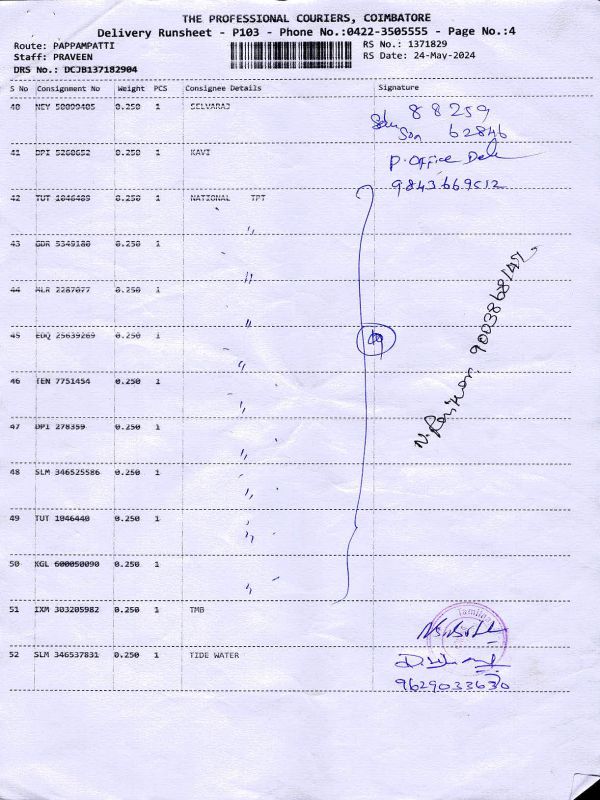 THE PROFESSIONAL COURIERS, COIMBATORE
Delivery Runsheet - P103 - Phone No.:0422-3505555 - Page No.:4
Route: PAPPAMPATTI RS No.: 1371829
Staff: PRAVEEN RS Date: 24-May-2024
DRS No.: DCJB137182904
S No Consignment No Weight PCS Consignee Details Signature
40 NEY 50099405 0.250 1 SELVARAJ 88259
Son 62846
41 DPI 5260652 0.250 1 KAVI P. Office
9843669512
42 TUT 1046489 0.250 1 NATIONAL TPT
〃
43 GDR 5349180 0.250 1
〃
44 MLR 2287077 0.250 1
〃
45 EDQ 25639269 0.250 1
〃
46 TEN 7751454 0.250 1
〃
47 DPI 278359 0.250 1
〃
48 SLM 346525586 0.250 1
〃
49 TUT 1046440 0.250 1
〃
50 KGL 600050090 0.250 1
〃
9003868147
51 IXM 303205982 0.250 1 TMB
52 SLM 346537831 0.250 1 TIDE WATER
9629033630